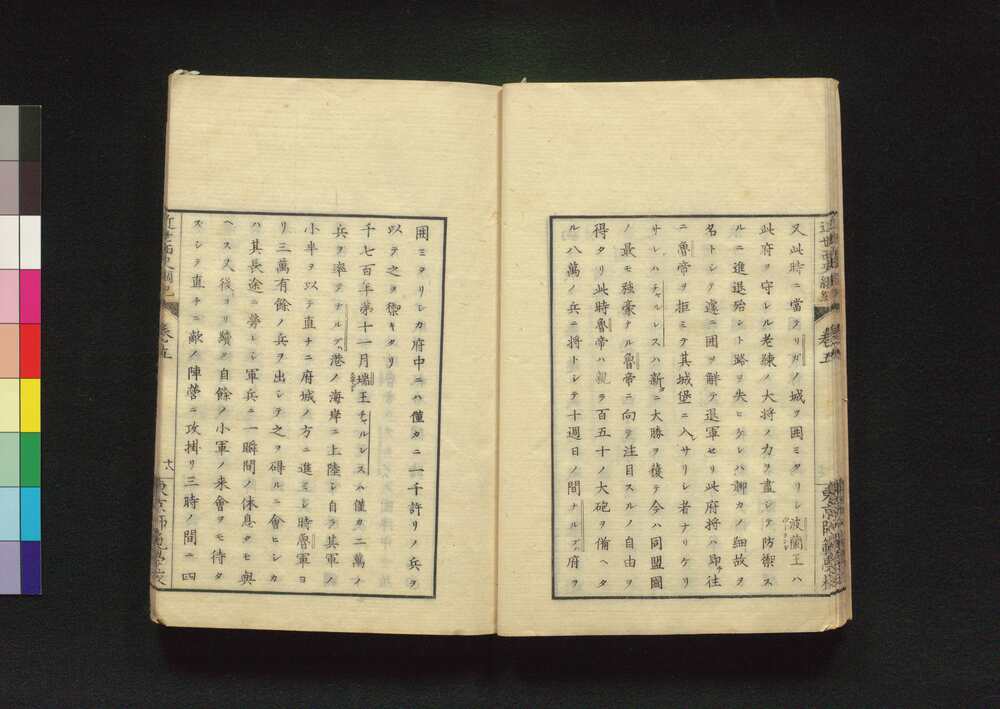 又此時ニ當テリガノ城ヲ囲ミタリシ波蘭王ハ
此府ヲ守レル老練ノ大将ノ力ヲ盡シテ防禦ス
ルニ進退殆ント路ヲ失ヒケレハ聊カノ細故ヲ
名トシテ遽ニ囲ヲ解テ退軍セリ此府将ハ即チ往
ニ魯帝ヲ拒ミテ其城堡ニ入ラサリシ者ナリケリ
サレハチャルレスハ新タニ大勝ヲ復テ今ハ同盟國
ノ最モ強豪ナル魯帝ニ向テ注目スルノ自由ヲ
得タリ此時魯帝ハ親ラ百五十ノ大砲ヲ備ヘタ
ル八萬ノ兵ニ将トシテ十週日ノ間ナルヴァ府ヲ
囲ミタリシカ府中ニハ僅カニ一千許リノ兵ヲ
以テ之ヲ禦キタリ
千七百年第十一月瑞王チャルレスハ僅カ二萬ノ
兵ヲ率テナルヴァ港ノ海岸ニ上陸シ自ラ其軍ノ
小半ヲ以テ直チニ府城ノ方ニ進ミシ時魯軍ヨ
リ三萬有餘ノ兵ヲ出シテ之ヲ碍ルニ會ヒシカ
ハ其長途ニ勞レシ軍兵ニ一瞬間ノ休息タモ與
ヘス又後ヨリ續ク自餘ノ小軍ノ来會ヲモ待タ
スシテ直チニ敵ノ陣營ニ攻掛リ三時ノ間ニ四
近世西史綱紀
卷五
十六
東京師範學校